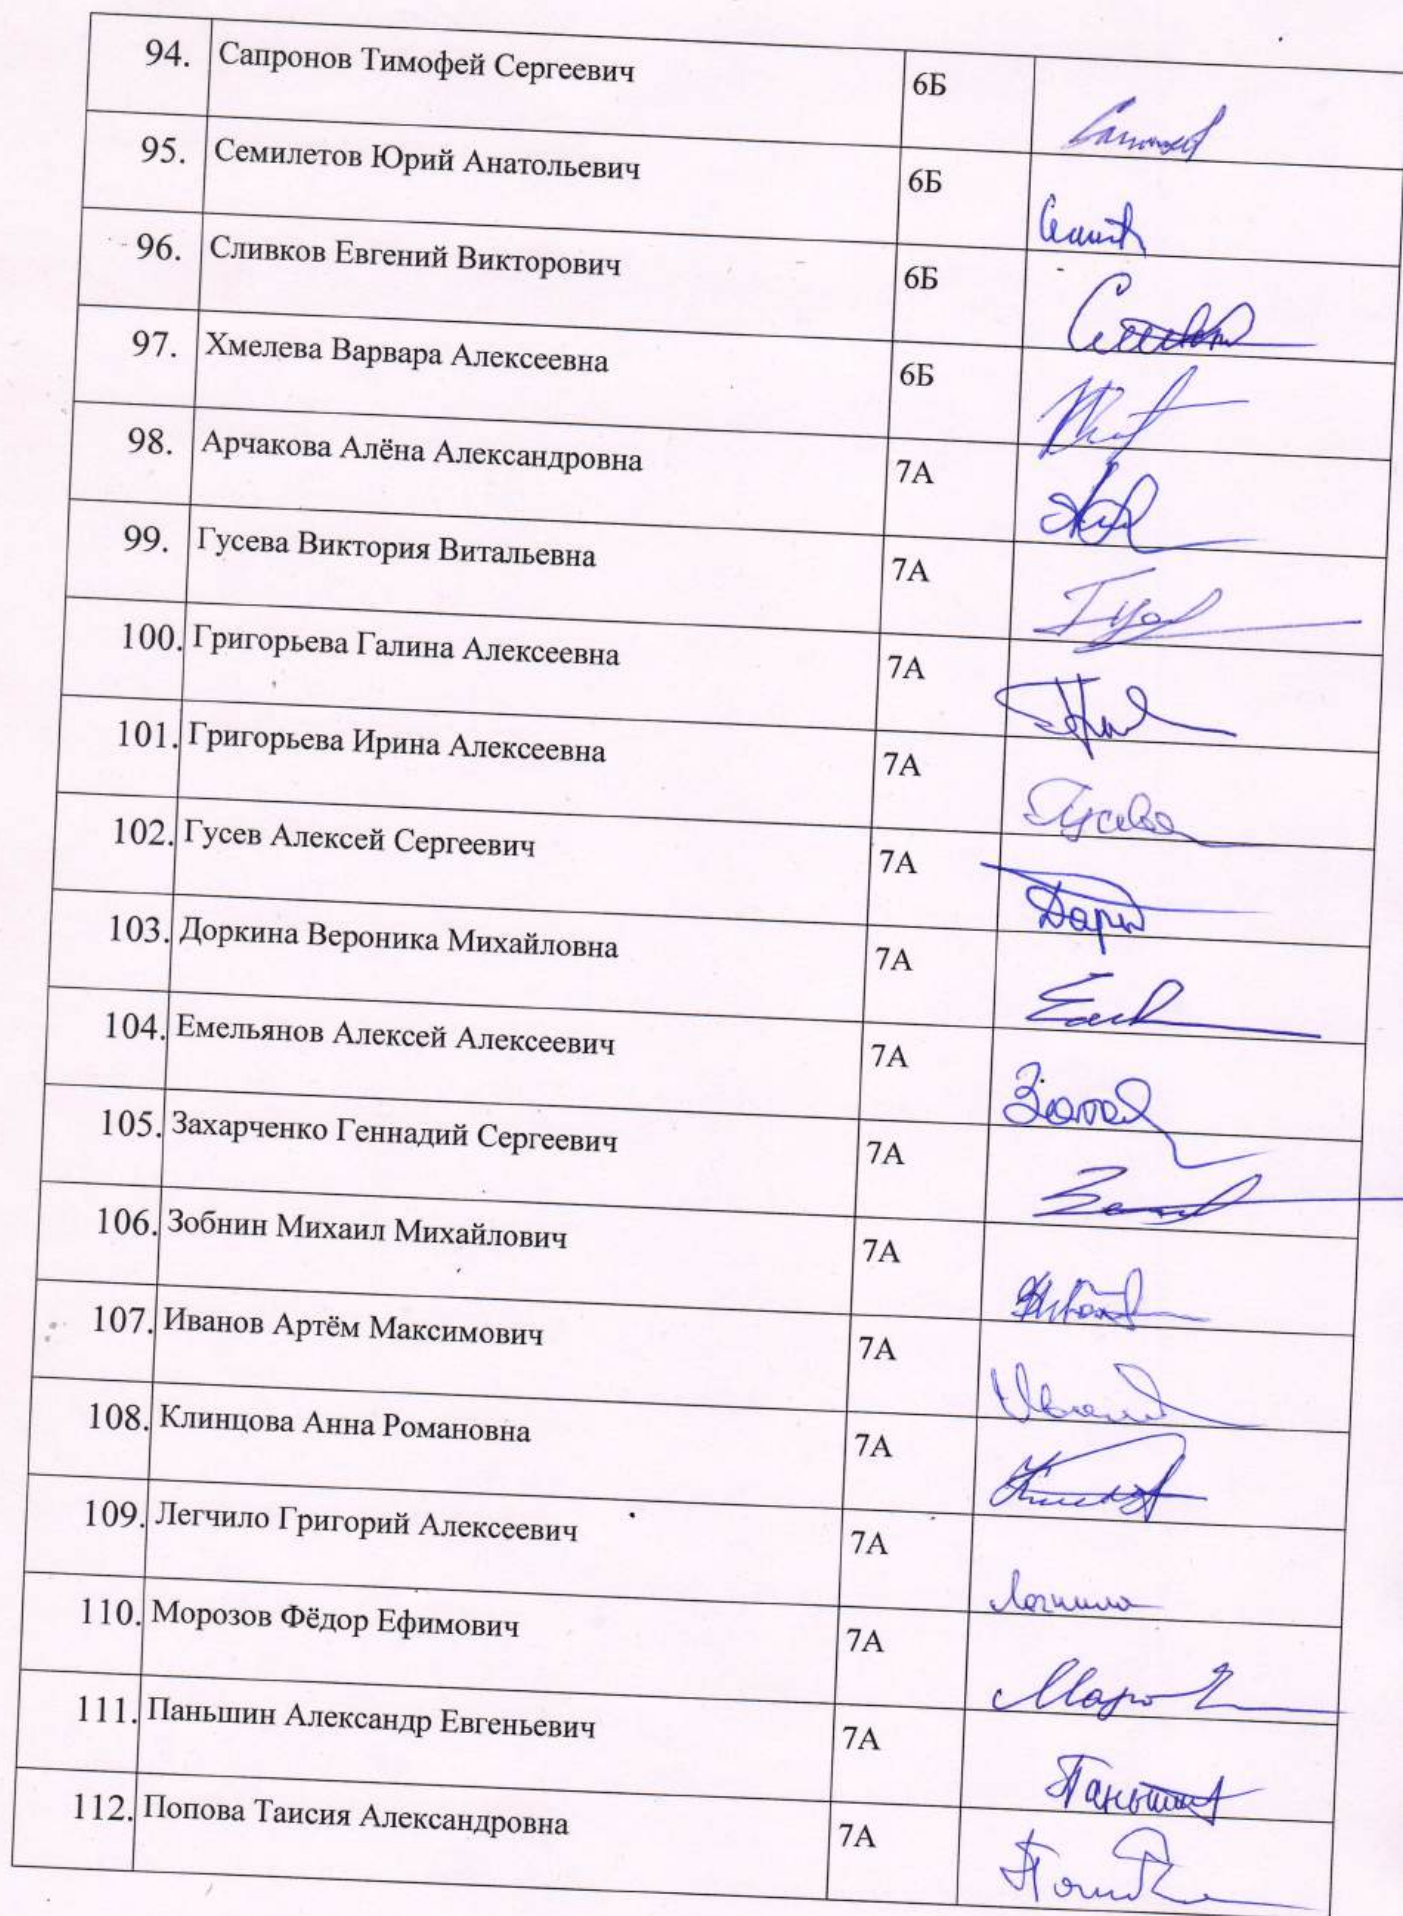 94. Сапронов Тимофей Сергеевич 6Б
95. Семилетов Юрий Анатольевич 6Б
96. Сливков Евгений Викторович 6Б
97. Хмелева Варвара Алексеевна 6Б
98. Арчакова Алёна Александровна 7А
99. Гусева Виктория Витальевна 7А
100. Григорьева Галина Алексеевна 7А
101. Григорьева Ирина Алексеевна 7А Гусева
102. Гусев Алексей Сергеевич 7А
103. Доркина Вероника Михайловна 7А
104. Емельянов Алексей Алексеевич 7А
105. Захарченко Геннадий Сергеевич 7А
106. Зобнин Михаил Михайлович 7А
107. Иванов Артём Максимович 7А
108. Клинцова Анна Романовна 7А
109. Легчило Григорий Алексеевич 7А
110. Морозов Фёдор Ефимович 7А
111. Паньшин Александр Евгеньевич 7А
112. Попова Таисия Александровна 7А